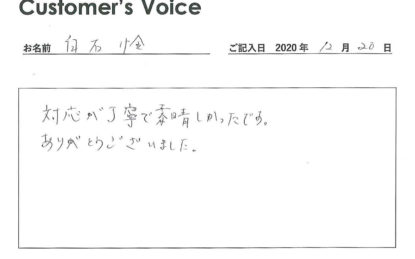 Customer's Voice
お名前 白石 怜 ご記入日 2020年 12月 20日
対応が丁寧で素晴しかったです。
ありがとうございました。